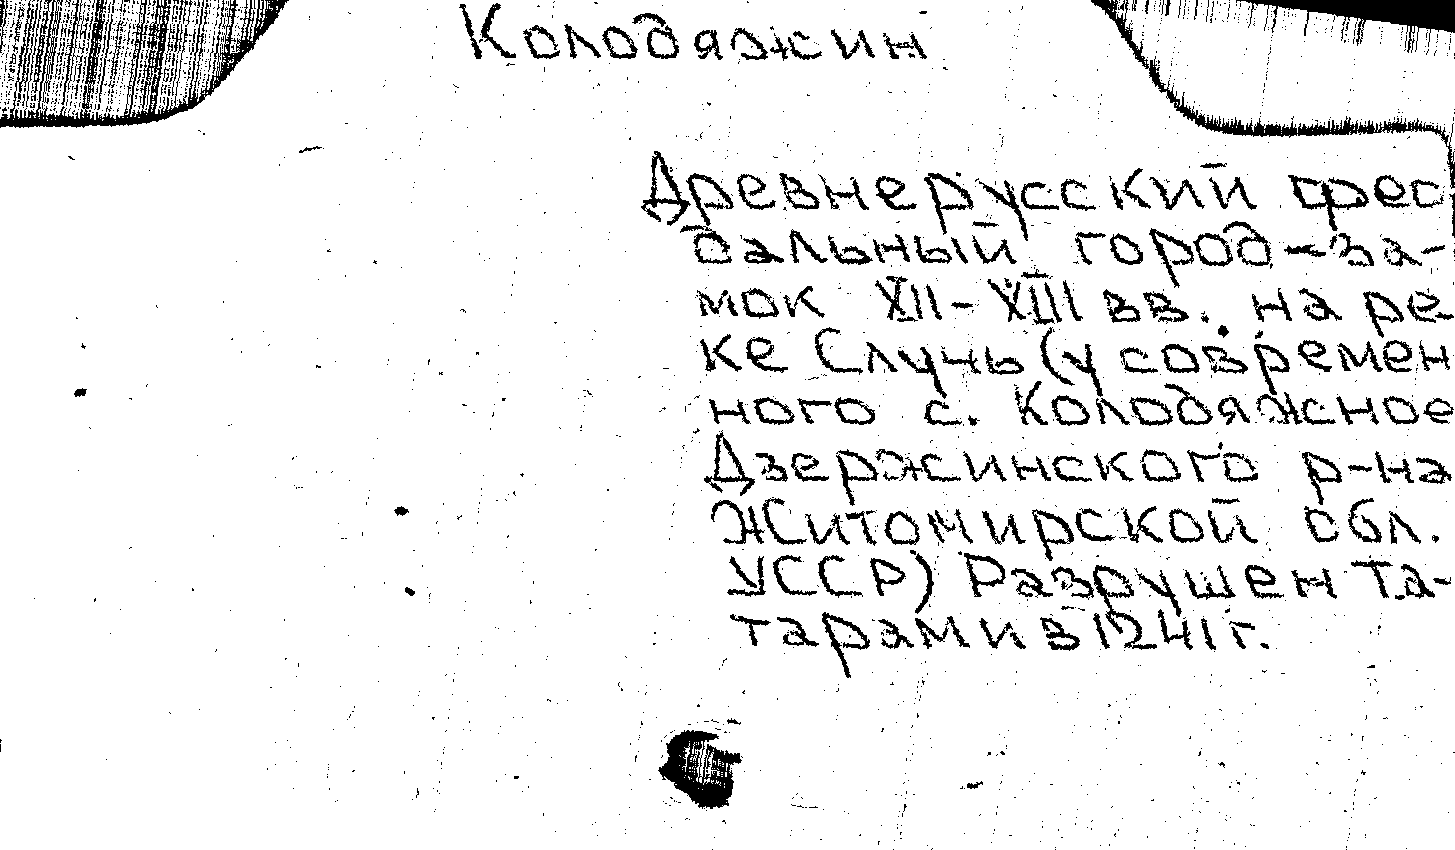 Колодяжин
Древнерусский феод
дальный город-за-
мок XII-XIII вв. на ре-
ке Случь (у современ
ного с. Колодяжное
Дзержинского р-на
Житомирской обл.
УССР) Разрушен та-
тарами в 1241 г.